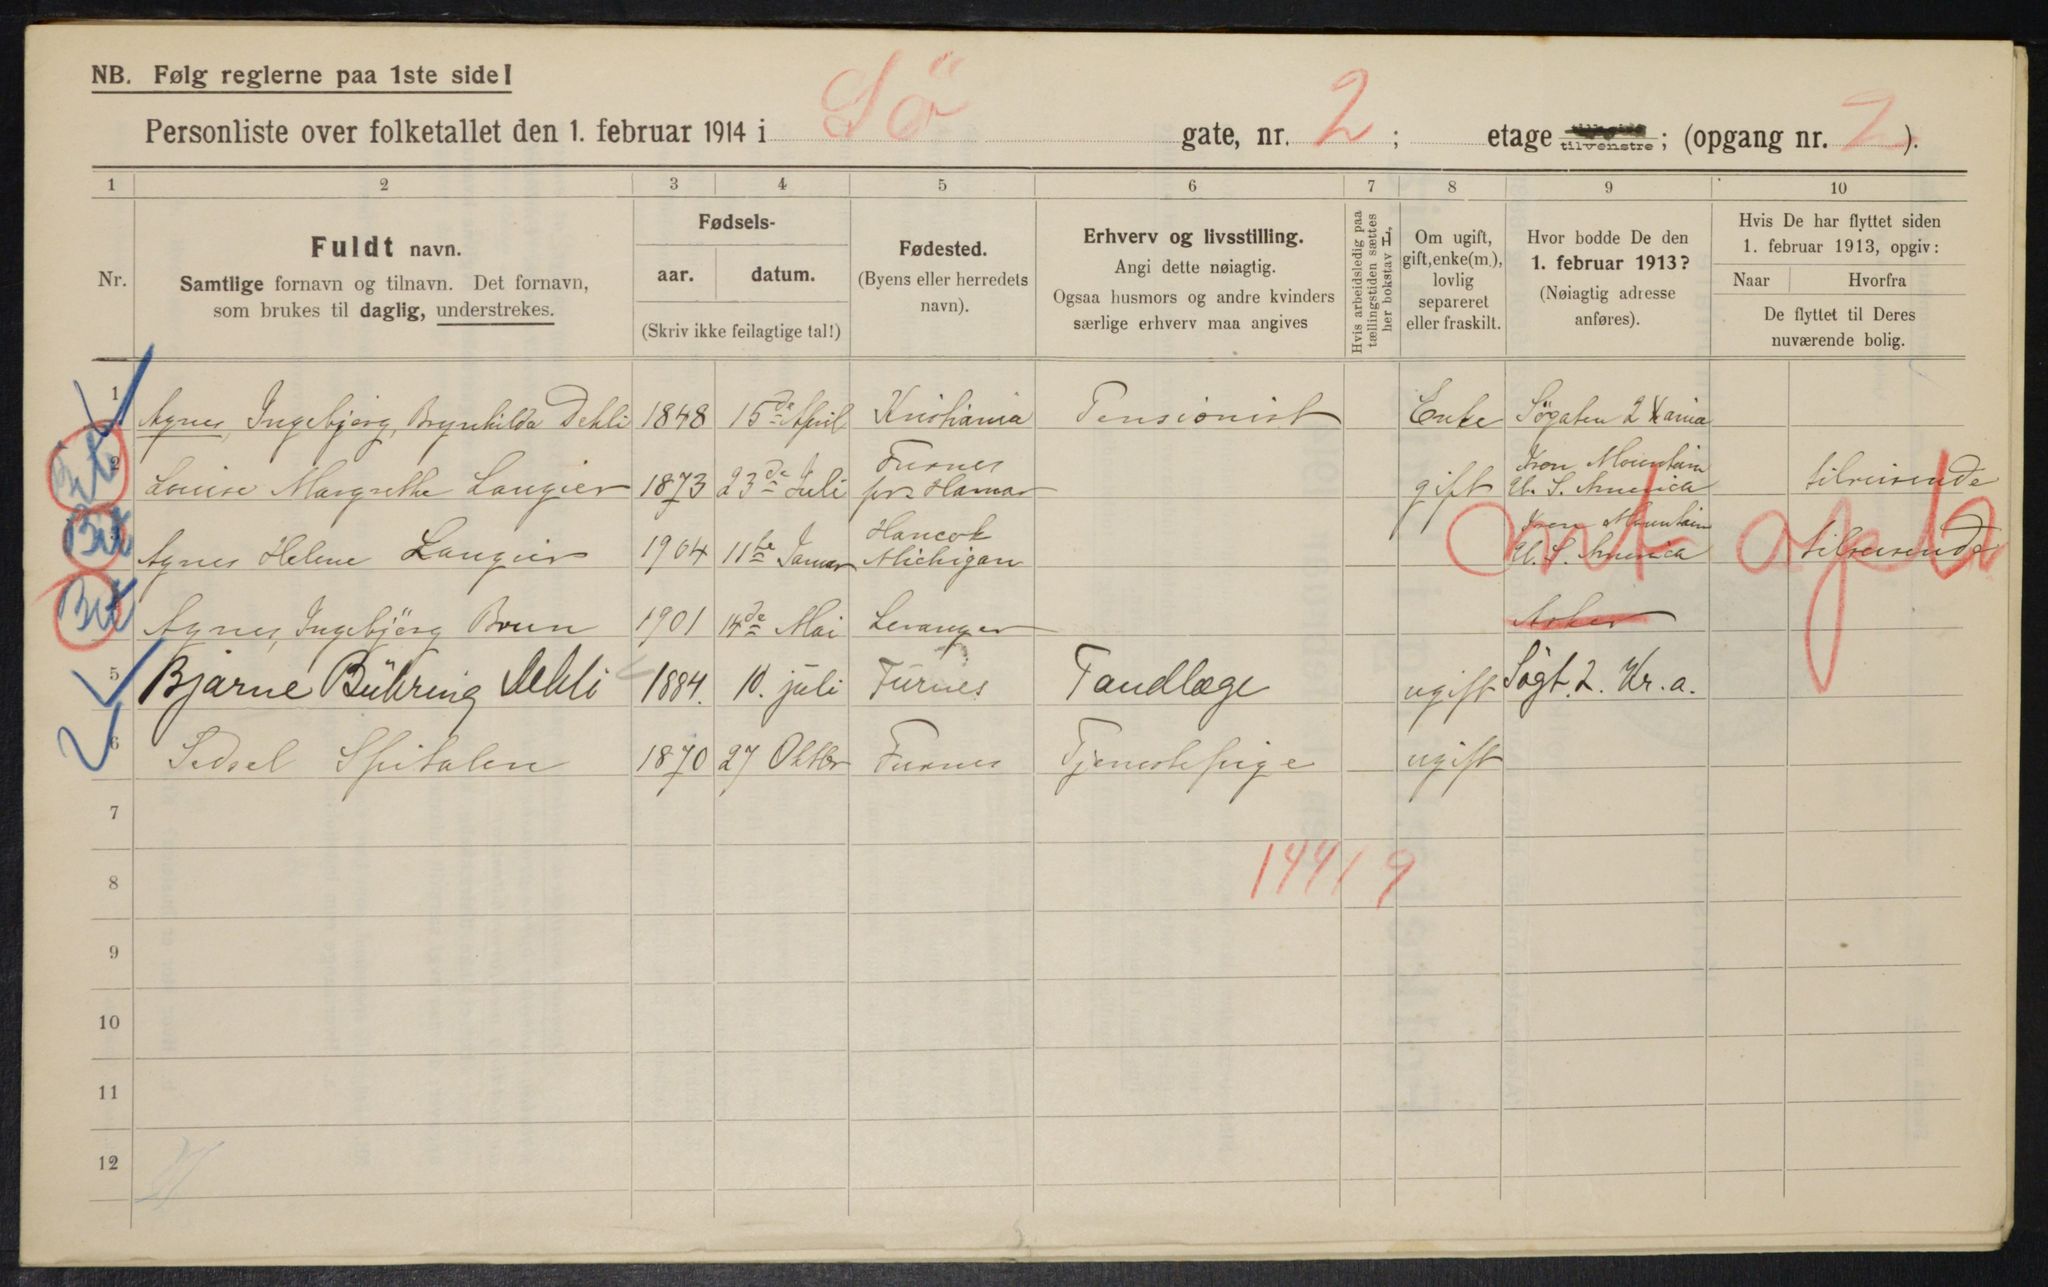 NB. Følg reglerne paa 1ste side!
Personliste over folketallet den 1. februar 1914 i Sö gate, nr. 2; etage tilvenstre; (opgang nr. 2).
1 2 3 4 5 6 7 8 9 10
Nr.
Fuldt navn.
Samtlige fornavn og tilnavn. Det fornavn,
som brukes til daglig, understrekes.
Fødsels-
aar. datum.
(Skriv ikke feilagtige tal!)
Fødested.
(Byens eller herredets
navn).
Erhverv og livsstilling.
Angi dette nøiagtig.
Ogsaa husmors og andre kvinders
særlige erhverv maa angives
Hvis arbeidsledig paa
tællingstiden sættes
her bokstav L.
Om ugift,
gift, enke(m.),
lovlig
separeret
eller fraskilt.
Hvor bodde De den
1. februar 1913?
(Nøiagtig adresse
anføres).
Hvis De har flyttet siden
1. februar 1913, opgiv:
Naar Hvorfra
De flyttet til Deres
nuværende bolig.
1 Agnes, Ingebjørg, Brynhilda Dehli 1848 15de April Kristiania Pensionist Enke Søgaten 2 Xania
2 Louise Margrethe Laugier 1873 23de Juli Furnes pr. Hamar gift Iron Mountain U. S. America tilreisende
3 Agnes Helene Laugier 1904 11te Januar Hancok Michigan Iron Mountain U. S. America tilreisende
Agnes, Ingebjörg Brun 1901 14de Mai Levanger Asker
5 Bjarne Bühring Dehli 1884. 10. juli Furnes Tandlæge ugift Søgt. 2. Kr.a.
6 Sidsel Spitalen 1870 27 Oktbr Furnes Tjenestepige ugift
7
8 14419
9
10
11
12